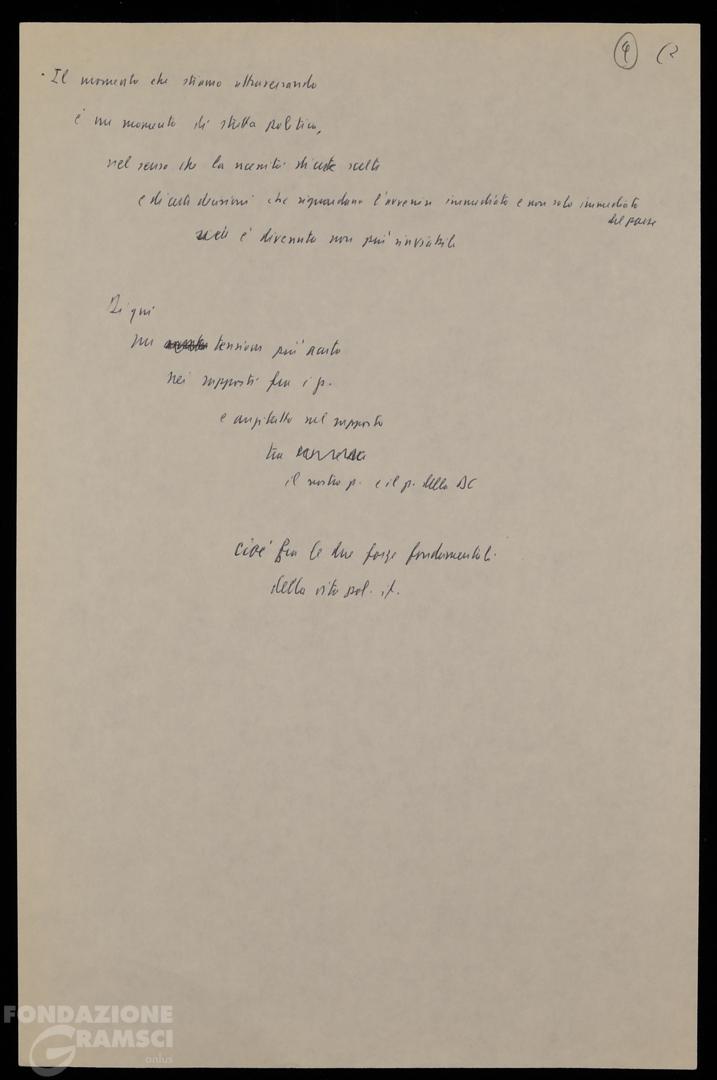 4 (2
· Il momento che stiamo attraversando
è un momento di stretta politica,
nel senso che la necessità di certe scelte
e di certe decisioni che riguardano l'avvenire immediato e non solo immediato
del paese
è divenuta non più rinviabile
Di qui
una tensione più acuta
nei rapporti fra i p.
e anzitutto nel rapporto
tra
il nostro p. e il p. della DC
cioè fra le due forze fondamentali
della vita pol. it.
FONDAZIONE
GRAMSCI
onlus